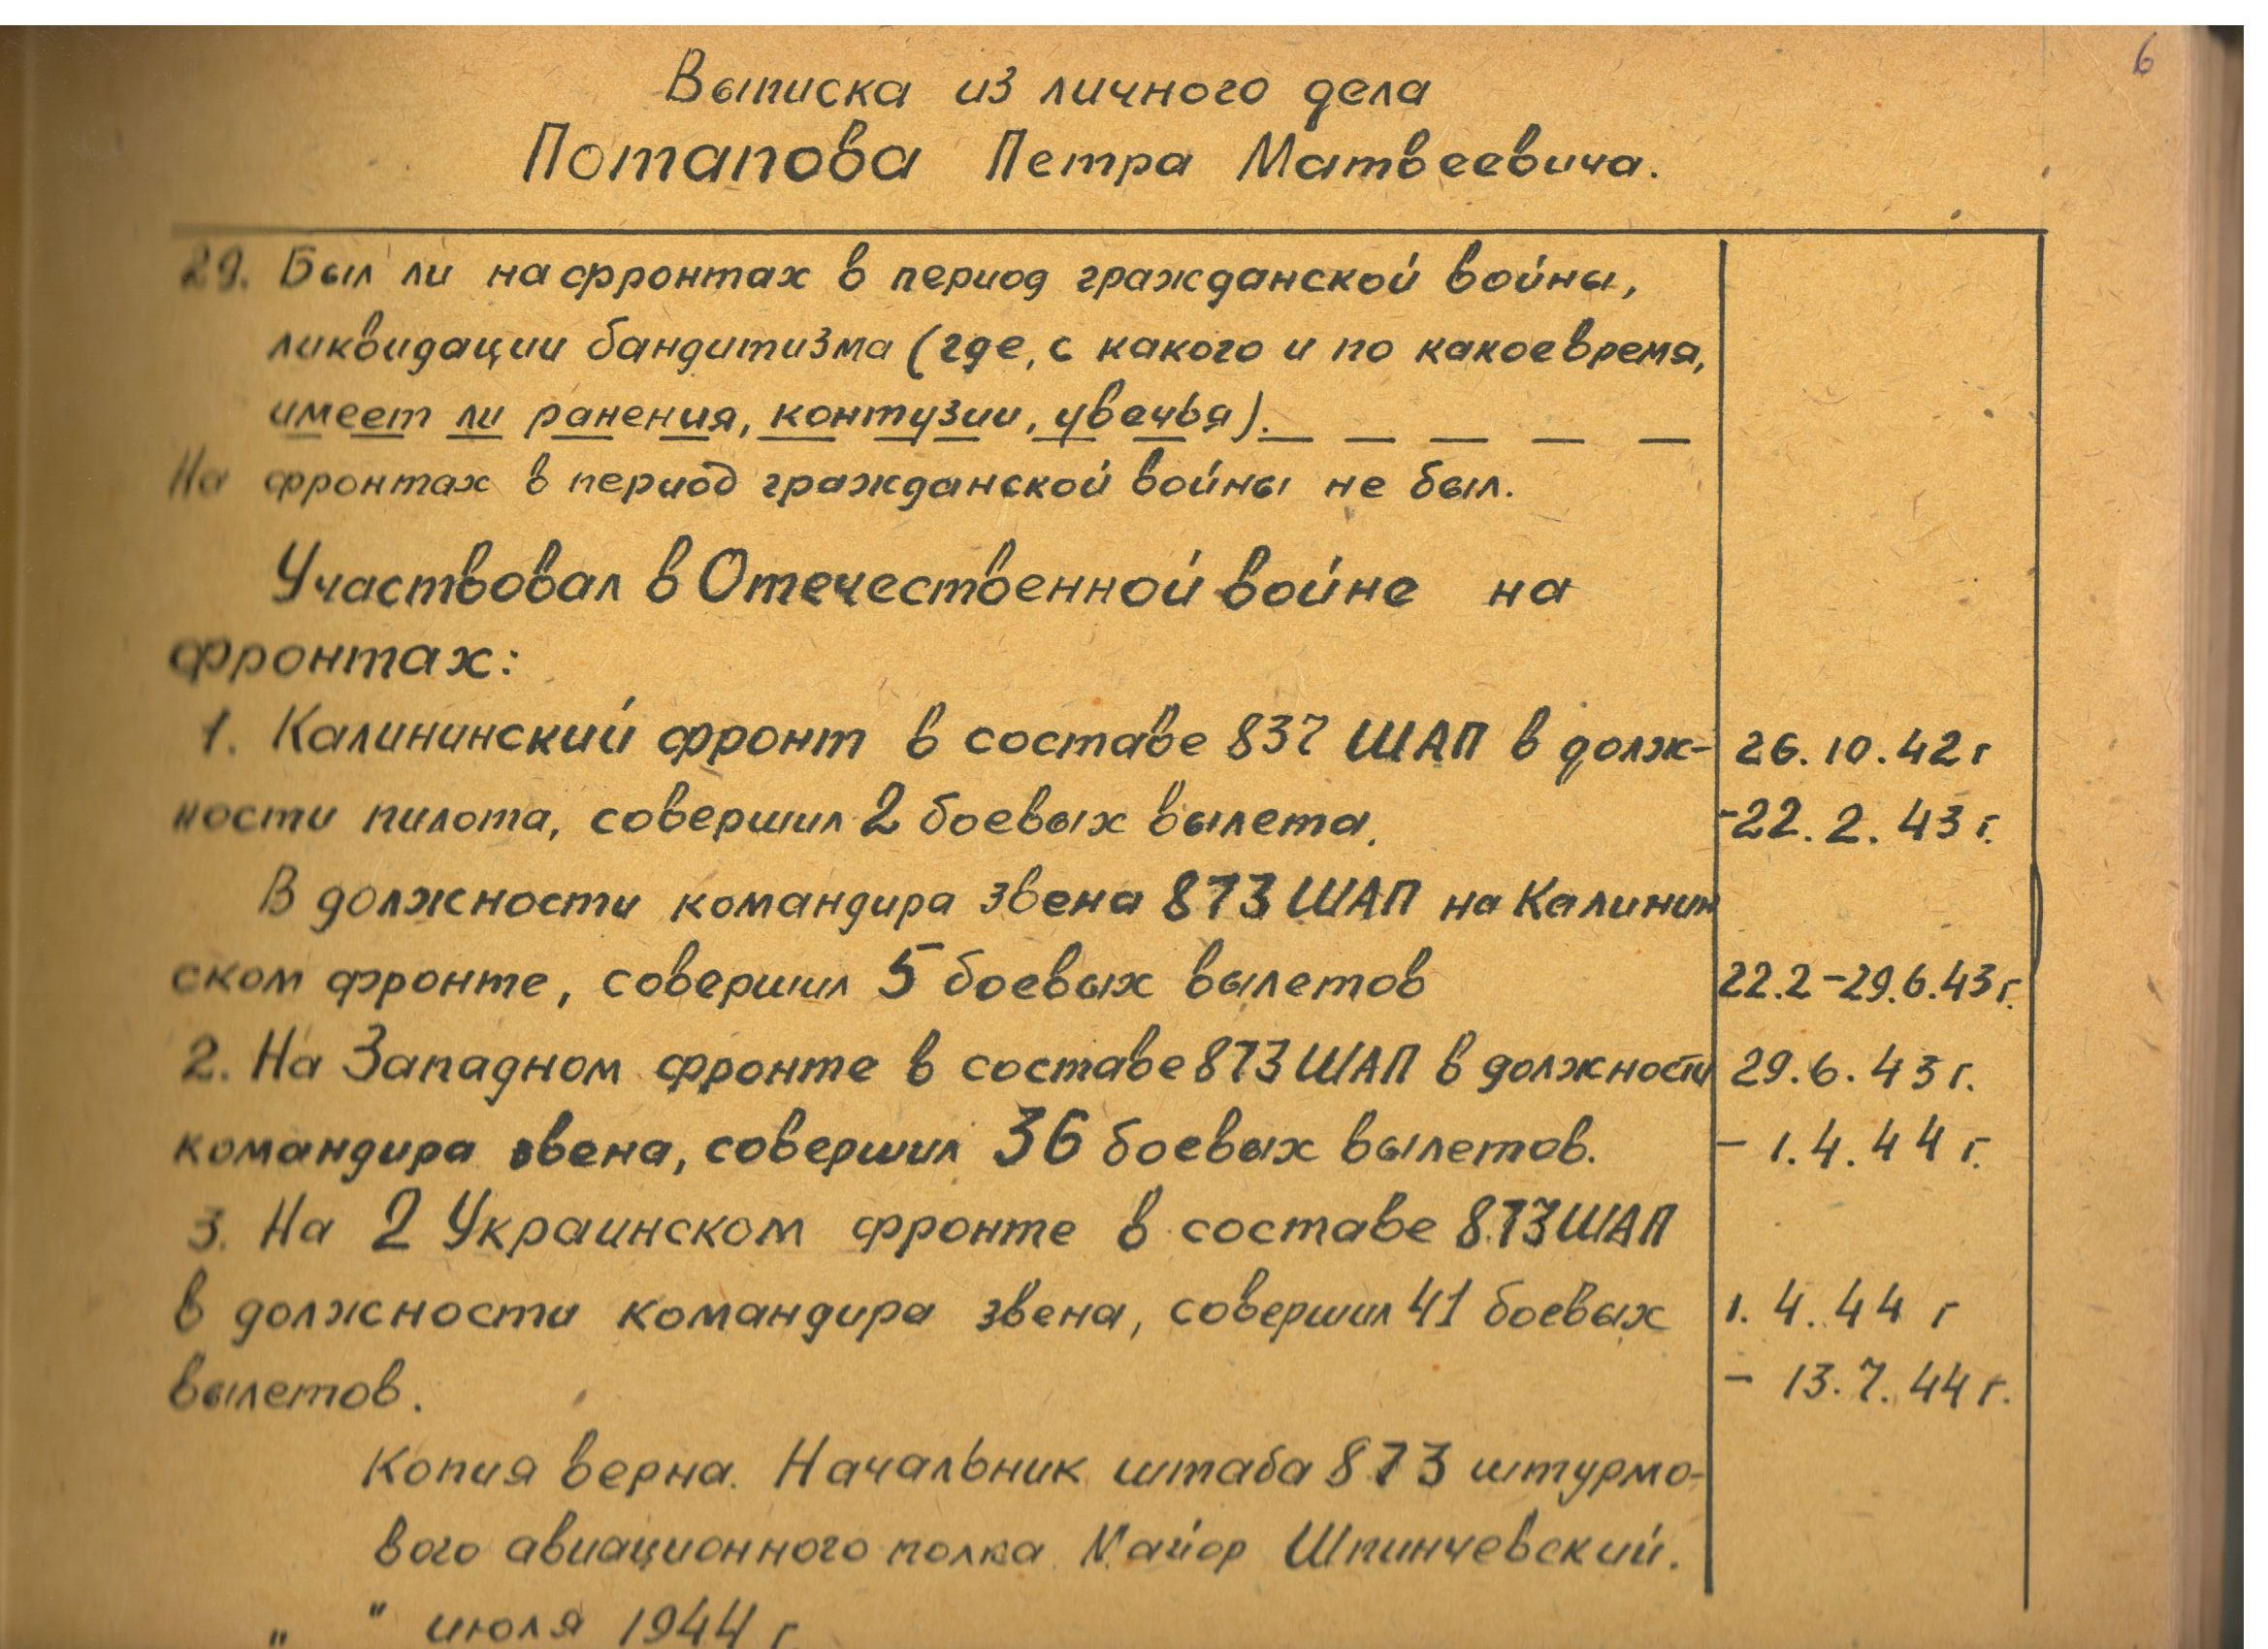 6
Выписка из личного дела
Потапова Петра Матвеевича.
29. Был ли на фронтах в период гражданской войны,
ликвидации бандитизма (где, с какого и по какое время,
имеет ли ранения, контузии, увечья).
На фронтах в период гражданской войны не был.
Участвовал в Отечественной войне на
фронтах:
1. Калининский фронт в составе 837 ШАП в долж- 26.10.42 г
ности пилота, совершил 2 боевых вылета. -22.2.43 г.
В должности командира звена 873 ШАП на Калинин
ском фронте, совершил 5 боевых вылетов 22.2-29.6.43 г.
2. На Западном фронте в составе 873 ШАП в должности 29.6.43 г.
командира звена, совершил 36 боевых вылетов. - 1.4.44 г.
3. На 2 Украинском фронте в составе 873 ШАП
в должности командира звена, совершил 41 боевых 1.4.44 г
вылетов. - 13.7.44 г.
Копия верна. Начальник штаба 873 штурмо-
вого авиационного полка Майор Шпинчевский.
„ " июля 1944 г.